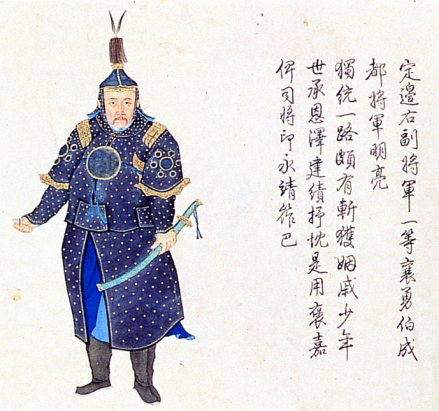 定邊右副將軍一等襄勇伯成
都將軍明亮
獨統一路頗有斬獲姻戚少年
世承恩澤建績抒忱是用褒嘉
俾司將印永靖筰巴